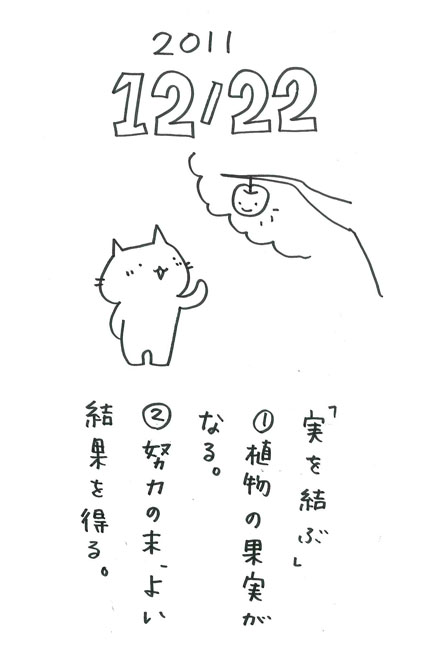 2011
12/22
「実を結ぶ」
①植物の果実が
なる。
②努力の末、よい
結果を得る。